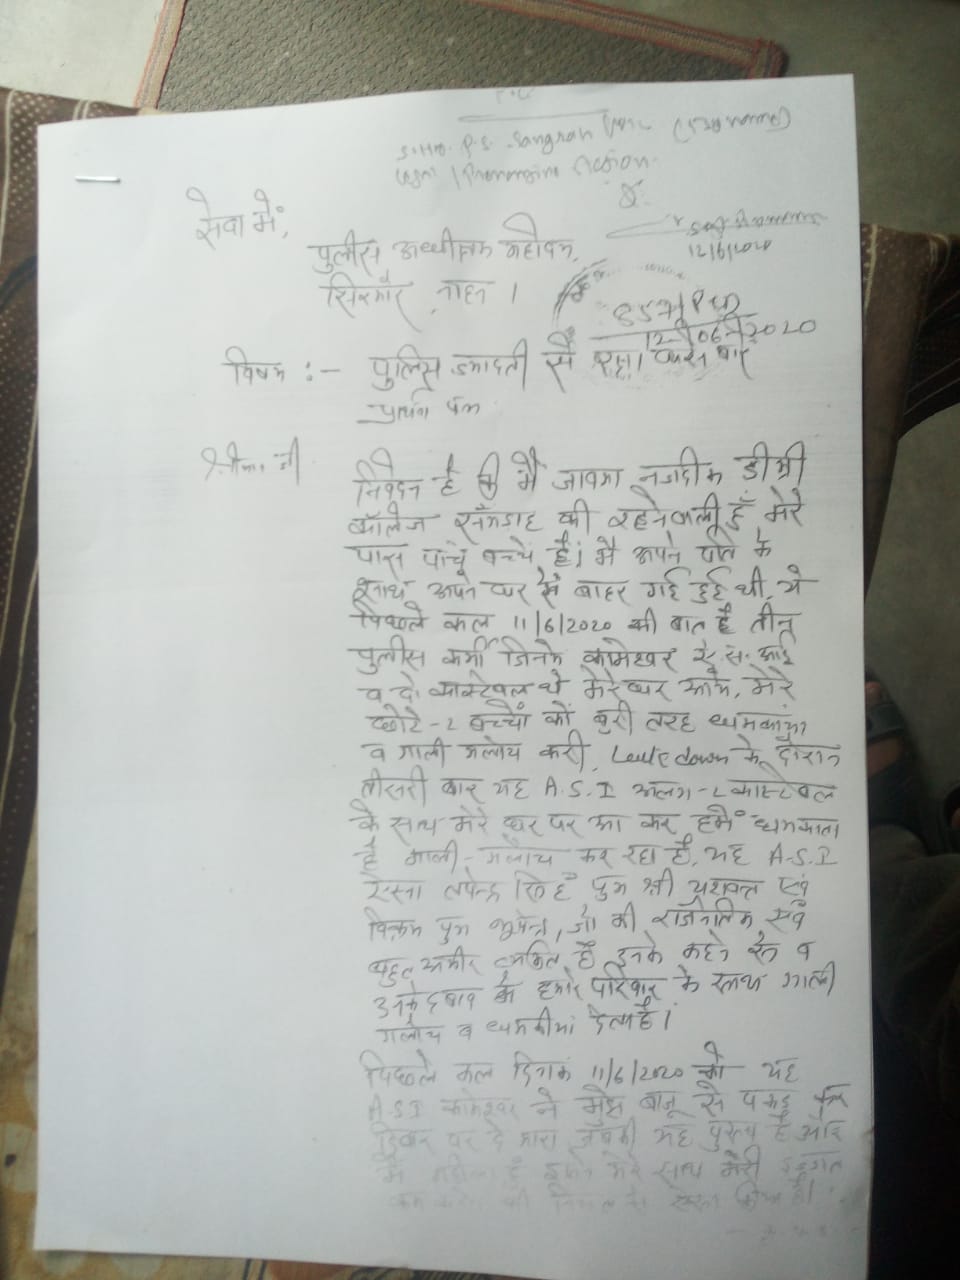 S.H.O. P.S. Sangrah
Action.
12/6/2020
सेवा में,
पुलीस अध्यीक्षक महोदय,
सिरमौर, नाहन ।
12 06 2020
विषय :- पुलिस ज्यादती से रक्षा करने बारे
प्रार्थना पत्र
श्रीमान जी
निवेदन है की मै जावगा नजदीक डीग्री
कॉलेज सँगडाह की रहनेवाली हूँ, मेरे
पास पांच बच्चे हैं। मै अपने पति के
साथ अपने घर से बाहर गई हुई थी, ये
पिछले कल 11/6/2020 की बात है तीन
पुलीस कर्मी जिनमे कामेश्वर ए. स. आई
व दो कास्टेबल थे मेरे घर आये, मेरे
छोटे-2 बच्चों को बुरी तरह धमकाया
व गाली गलोच करी, Lockdown के दौरान
तीसरी बार यह A.S.I अलग-2 कास्टेबल
के साथ मेरे घर पर आ कर हमें धमकाता
है गाली-गलौच कर रहा है, यह A.S.I
ऐसा तपेन्द्र सिंह पुत्र श्री यशवन्त एवं
विक्रम पुत्र भूपेन्द्र, जो की राजनैतिक एवं
बहुत अमीर व्यक्ति है इनके कहने से व
उनके दबाव मे हमारे परिवार के साथ गाली
गलोच व धमकीयां देता है।
पिछले कल दिनांक 11/6/2020 को यह
A.S.I कामेश्वर ने मुझे बाजू से पकड़ कर
दिवार पर दे मारा जबकी यह पुरुष है और
मै महिला हूँ इसने मेरे साथ मेरी इज्जत